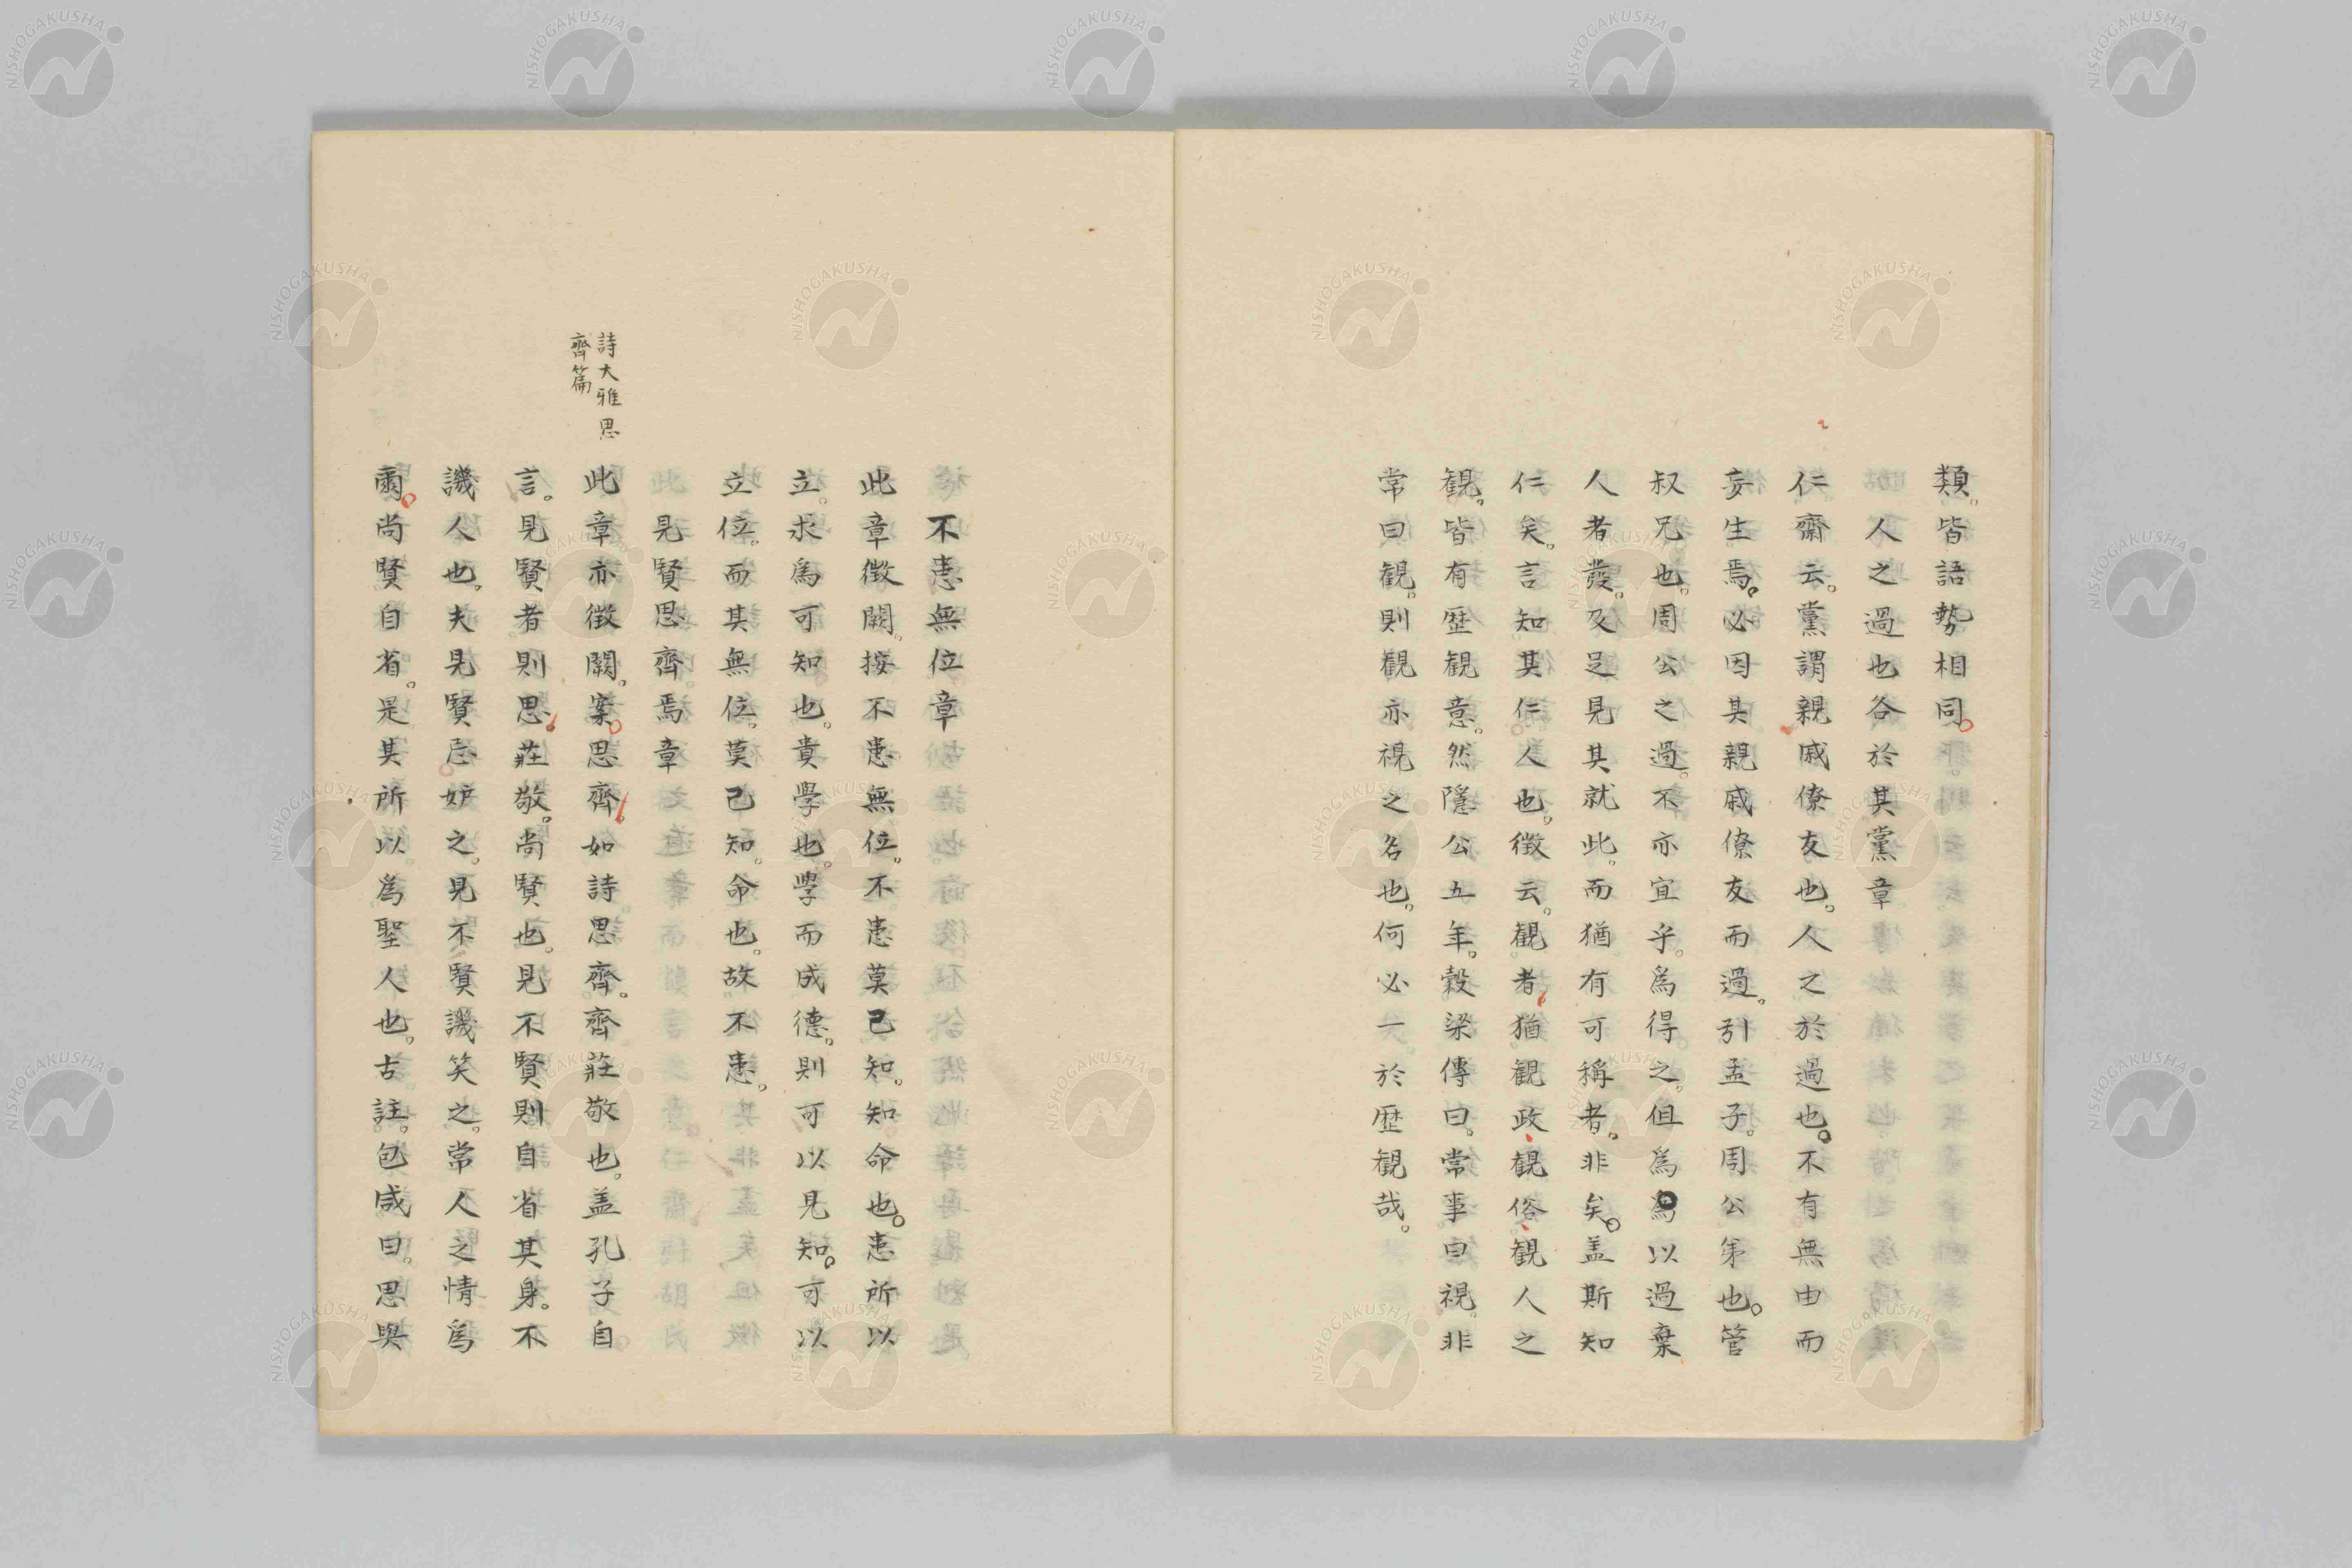 類。皆語勢相同。
人之過也各於其黨章
仁齋云。黨謂親戚僚友也。人之於過也。不有無由而
妄生焉。必因其親戚僚友而過。引孟子。周公弟也。管
叔兄也。周公之過。不亦宜乎。爲得之。但爲爲以過棄
人者發。及足見其就此。而猶有可稱者。非矣。盖斯知
仁矣。言知其仁人也。徴云。観者猶観政観俗観人之
観。皆有歴観意。然隱公五年。穀梁傳曰。常事曰視。非
常曰観。則観亦視之名也。何必一於歴観哉。
不患無位章
此章徴闕。按不患無位。不患莫己知。知命也。患所以
立。求爲可知也。貴學也。學而成德。則可以見知。可以
立位。而其無位。莫己知。命也。故不患。
見賢思齊焉章
詩大雅思
齊篇
此章亦徴闕。案。思齊如詩思齊。齊莊敬也。盖孔子自
言。見賢者則思莊敬。尚賢也。見不賢則自省其身。不
譏人也。夫見賢忌妒之。見不賢譏笑之。常人之情爲
爾。尚賢自省。是其所以爲聖人也。古註。包咸曰。思與